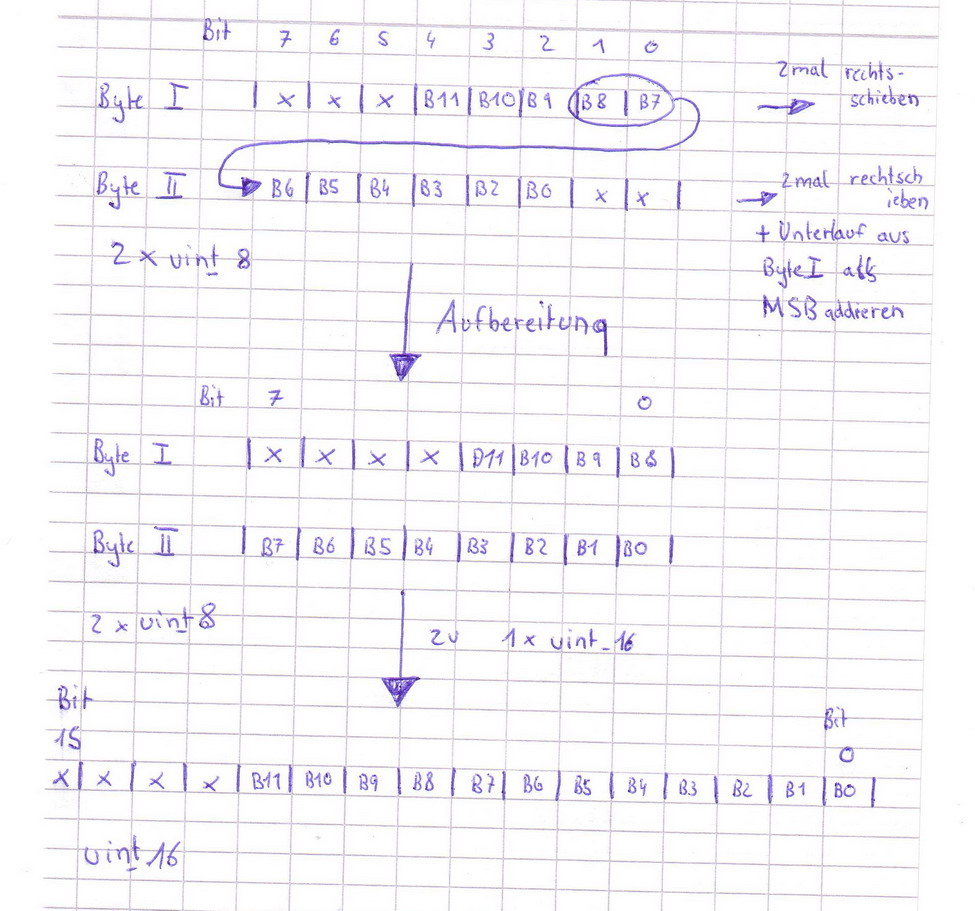 Bit 7 6 5 4 3 2 1 0
2mal rechts-
Byte I | x | x | x | B11 | B10 | B9 | B8 | B7 schieben
Byte II B6 | B5 | B4 | B3 | B2 | B0 | x | x | 2mal rechtsch
ieben
+ Unterlauf aus
2 x uint 8 Byte I als
Aufbereitung MSB addieren
Bit 7 0
Byte I | x | x | x | x | B11 | B10 | B9 | B8 |
Byte II | B7 | B6 | B5 | B4 | B3 | B2 | B1 | B0 |
2 x uint 8
zu 1 x uint_16
Bit
15
Bit
0
x | x | x | x | B11 | B10 | B9 | B8 | B7 | B6 | B5 | B4 | B3 | B2 | B1 | B0 |
uint 16